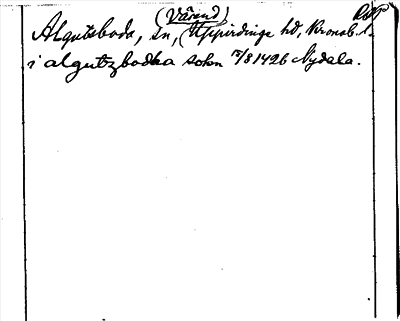 (Värend) RAP
Algutsboda, sn, Uppvidinge hd, Kronob. l.
i algutzbodha sokn 15/8 1426 Nydala.